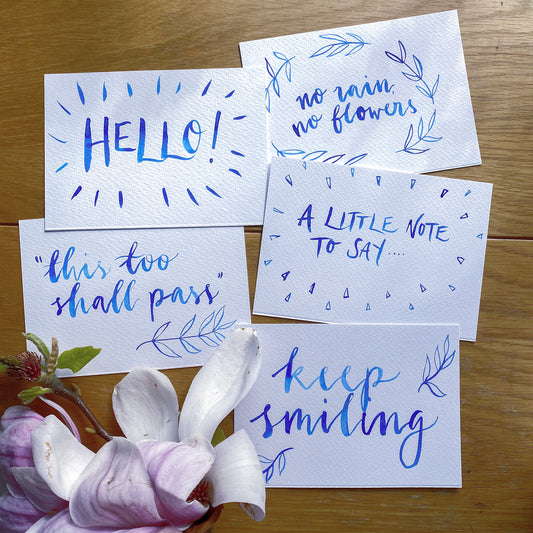 HELLO!
no rain,
no flowers
A LITTLE NOTE
TO SAY....
"this too
shall pass"
keep
smiling